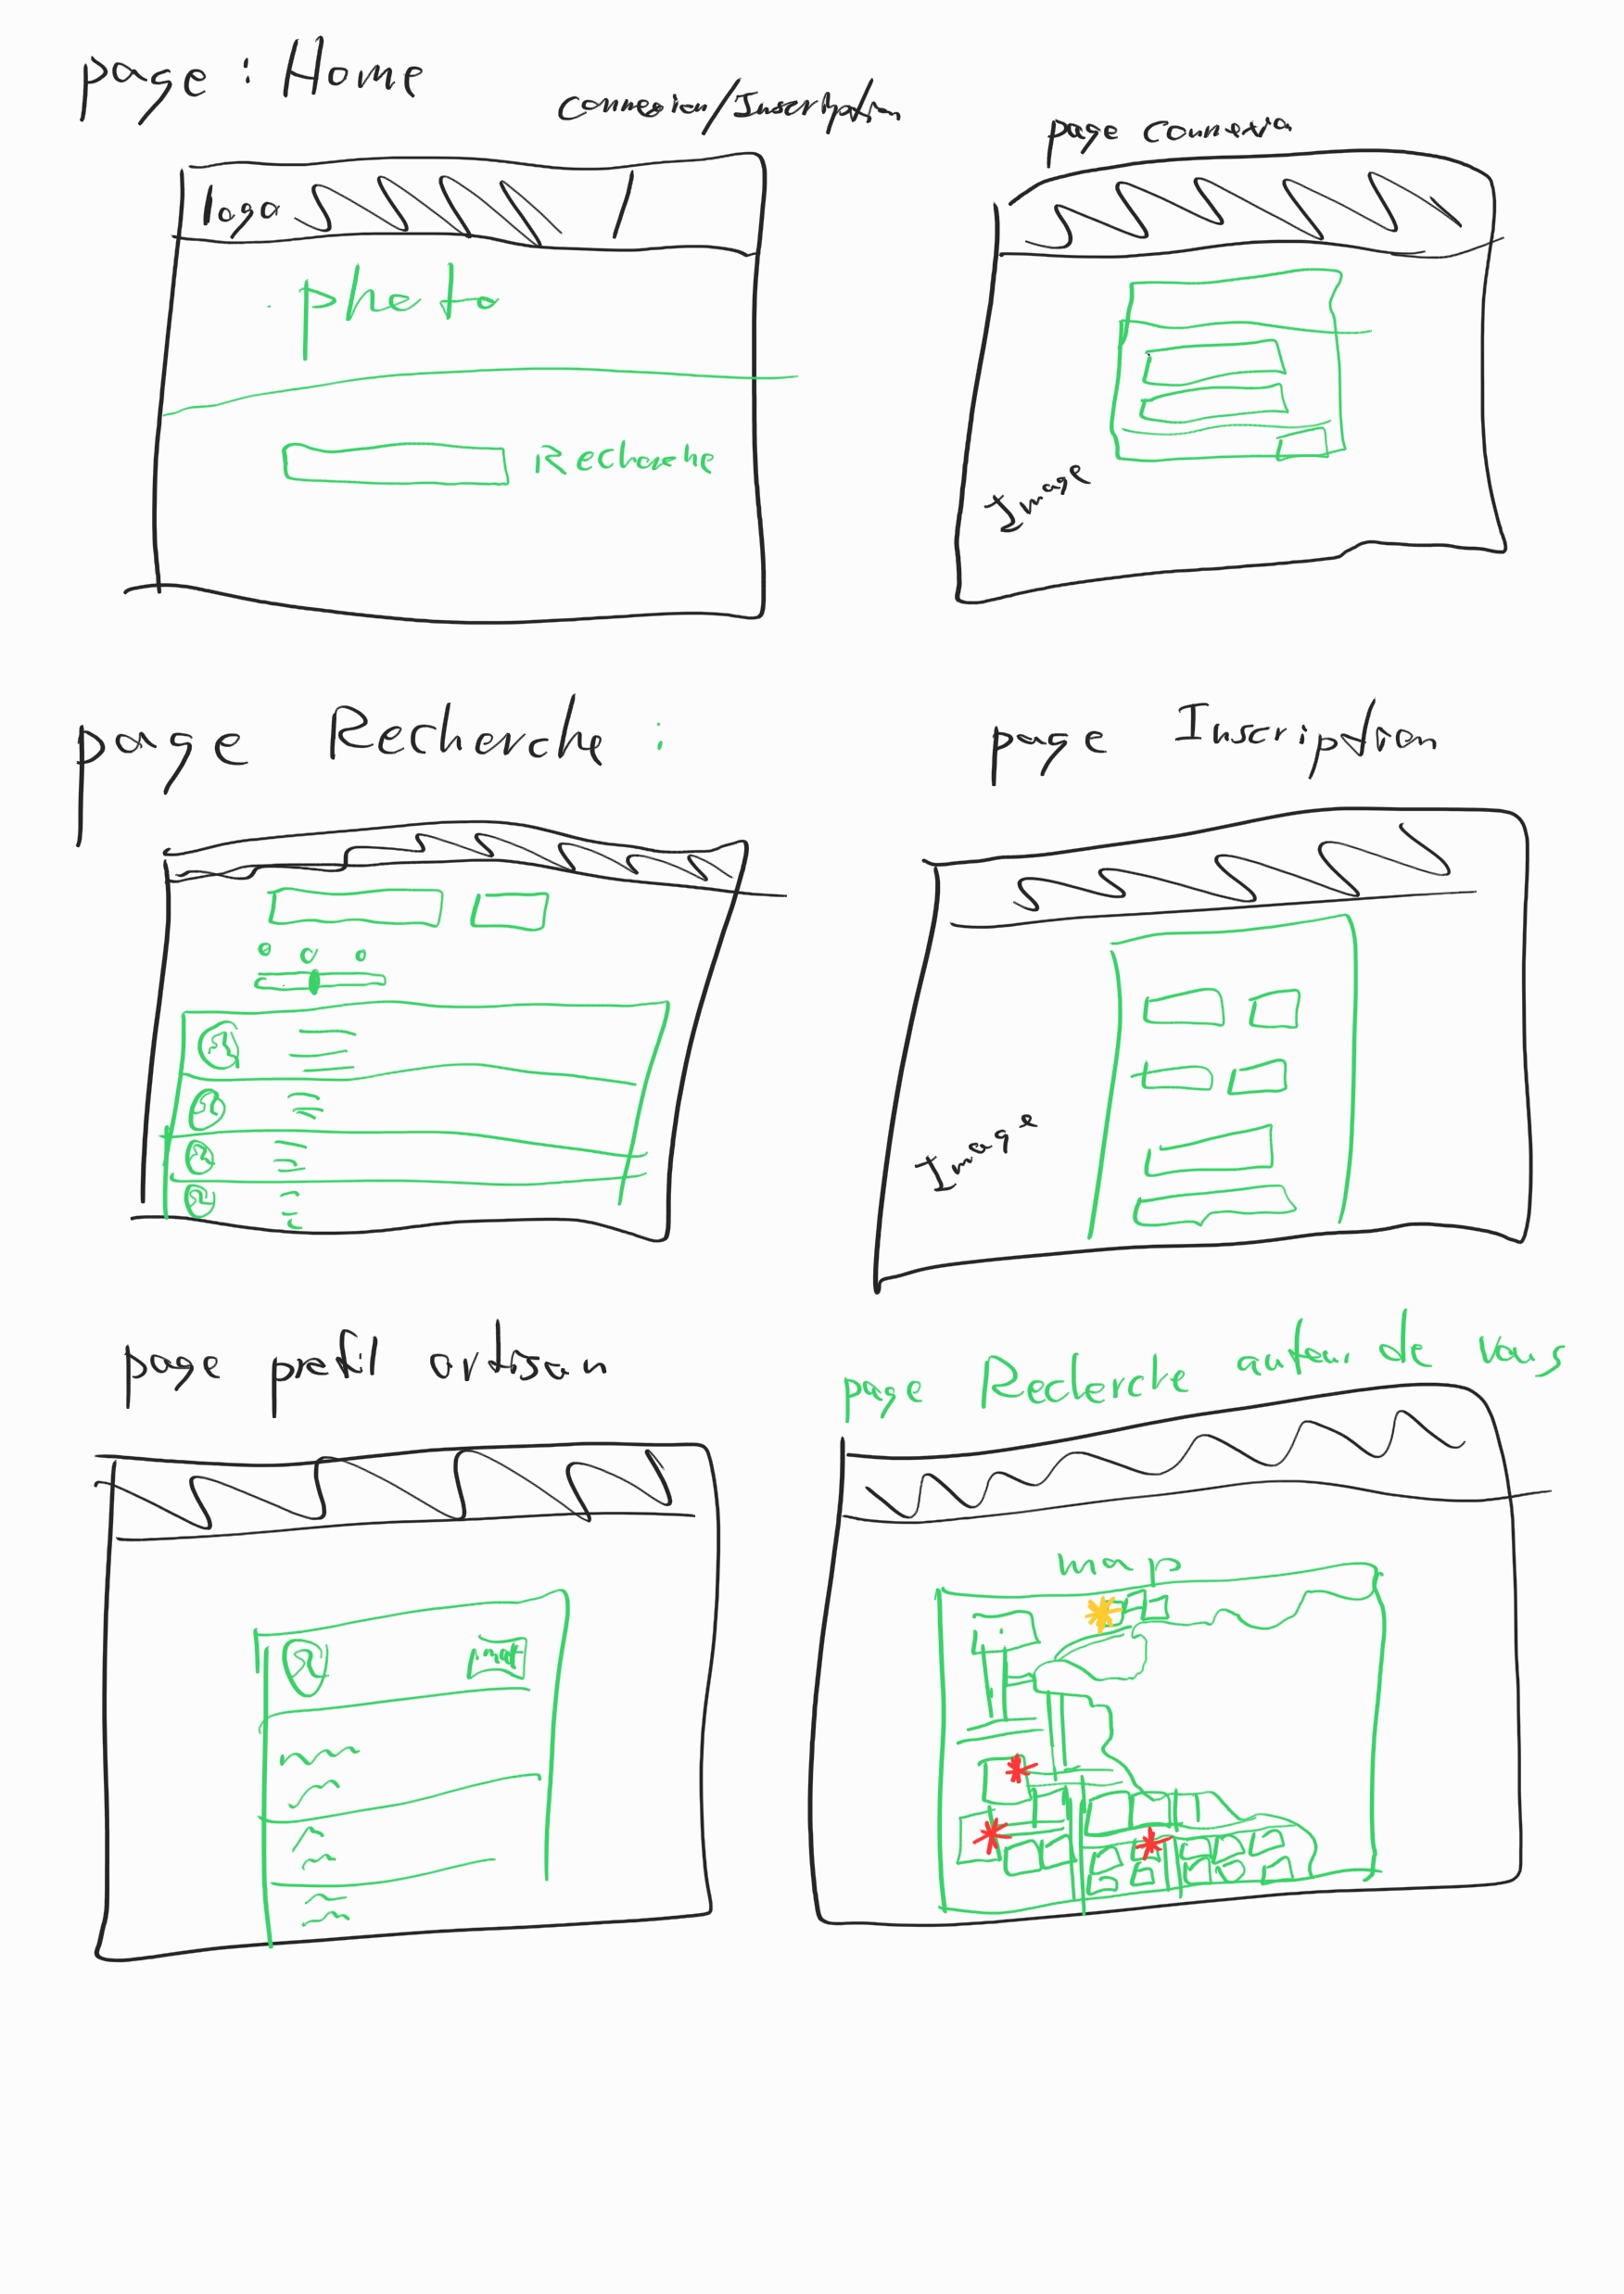 page : Home
Connexion/Inscription
logo
photo
Recherche
page Connexion
Image
page Recherche :
page Inscription
Image
page profil artisan
page Recherche autour de vous
map